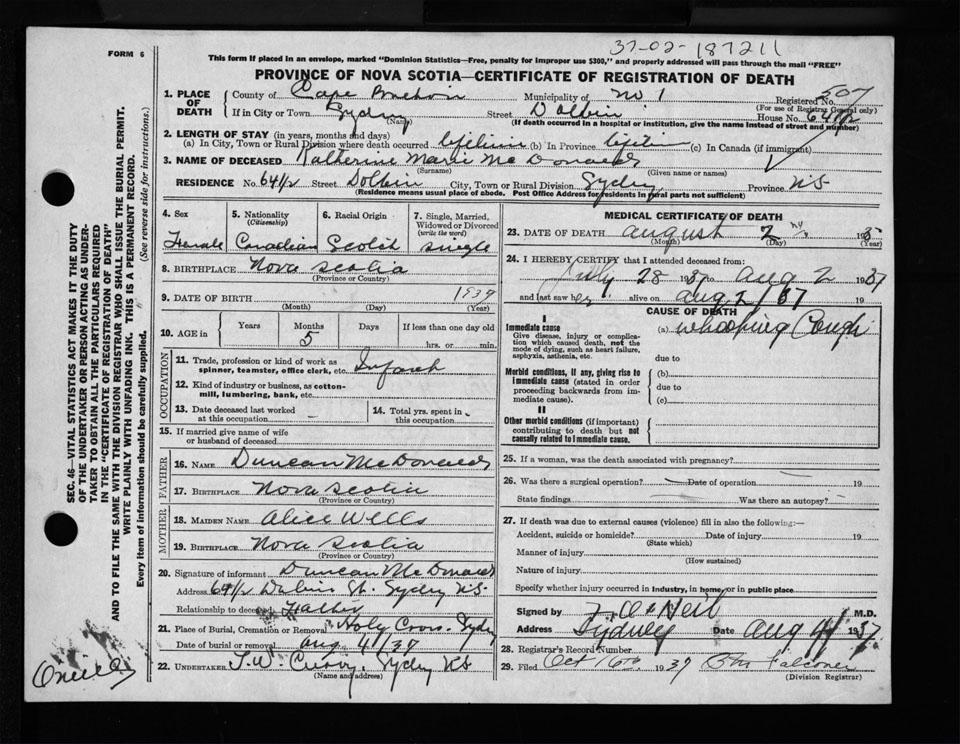 37-02-187211
FORM 6
This form if placed in an envelope, marked "Dominion Statistics—Free, penalty for improper use $300," and properly addressed will pass through the mail "FREE"
PROVINCE OF NOVA SCOTIA—CERTIFICATE OF REGISTRATION OF DEATH
1. PLACE OF DEATH County of Cape Breton Municipality of No 1 Registered No. 507
(For use of Registrar General only)
If in City or Town Sydney Street Dolbin House No. 64 1/2
(Name) (If death occurred in a hospital or institution, give the name instead of street and number)
2. LENGTH OF STAY (in years, months and days)
(a) In City, Town or Rural Division where death occurred lifetime (b) In Province lifetime (c) In Canada (if immigrant)
3. NAME OF DECEASED Katherine Marie McDonald
(Surname) (Given name or names)
RESIDENCE No. 64 1/2 Street Dolbin City, Town or Rural Division Sydney Province N.S
(Residence means usual place of abode. Post Office Address for residents in rural parts not sufficient)
4. Sex 5. Nationality (Citizenship) 6. Racial Origin 7. Single, Married, Widowed or Divorced (write the word)
Female Canadian Scotch single
8. BIRTHPLACE Nova Scotia
(Province or Country)
9. DATE OF BIRTH 1937
(Month) (Day) (Year)
10. AGE in Years Months Days If less than one day old
5 hrs. or min.
OCCUPATION
11. Trade, profession or kind of work as spinner, teamster, office clerk, etc. Infant
12. Kind of industry or business, as cotton-mill, lumbering, bank, etc.
13. Date deceased last worked at this occupation 14. Total yrs. spent in this occupation
15. If married give name of wife or husband of deceased
FATHER
16. NAME Duncan McDonald
17. BIRTHPLACE Nova Scotia
(Province or Country)
MOTHER
18. MAIDEN NAME Alice Wells
19. BIRTHPLACE Nova Scotia
(Province or Country)
20. Signature of informant Duncan McDonald
Address 64 1/2 Dolbin St. Sydney N.S.
Relationship to deceased Father
21. Place of Burial, Cremation or Removal Holy Cross. Sydney
Date of burial or removal Aug 4/37
22. UNDERTAKER T.W. Curry. Sydney N.S
(Name and address)
MEDICAL CERTIFICATE OF DEATH
23. DATE OF DEATH August 2 193
(Month) (Day) (Year)
24. I HEREBY CERTIFY that I attended deceased from:
July 28 1937 to Aug 2 1937
and last saw her alive on Aug 2/37 19
CAUSE OF DEATH
I
Immediate cause (a) Whooping Cough
Give disease, injury or complication which caused death, not the mode of dying, such as heart failure, asphyxia, asthenia, etc.
due to
Morbid conditions, if any, giving rise to Immediate cause (stated in order proceeding backwards from immediate cause). (b)
due to
(c)
II
Other morbid conditions (if important) contributing to death but not causally related to Immediate cause.
25. If a woman, was the death associated with pregnancy?
26. Was there a surgical operation? Date of operation 19
State findings Was there an autopsy?
27. If death was due to external causes (violence) fill in also the following:—
Accident, suicide or homicide? Date of injury 19
(State which)
Manner of injury
(How sustained)
Nature of injury
Specify whether injury occurred in Industry, in home, or in public place
Signed by O'Neil M.D.
Address Sydney Date Aug 4/ 1937
28. Registrar's Record Number
29. Filed Oct 16th 1937 Falconer
(Division Registrar)
SEC. 46—VITAL STATISTICS ACT MAKES IT THE DUTY
OF THE UNDERTAKER OR PERSON ACTING AS UNDER-
TAKER TO OBTAIN ALL THE PARTICULARS REQUIRED
IN THE "CERTIFICATE OF REGISTRATION OF DEATH"
AND TO FILE THE SAME WITH THE DIVISION REGISTRAR WHO SHALL ISSUE THE BURIAL PERMIT.
WRITE PLAINLY WITH UNFADING INK. THIS IS A PERMANENT RECORD.
Every item of information should be carefully supplied. (See reverse side for instructions.)